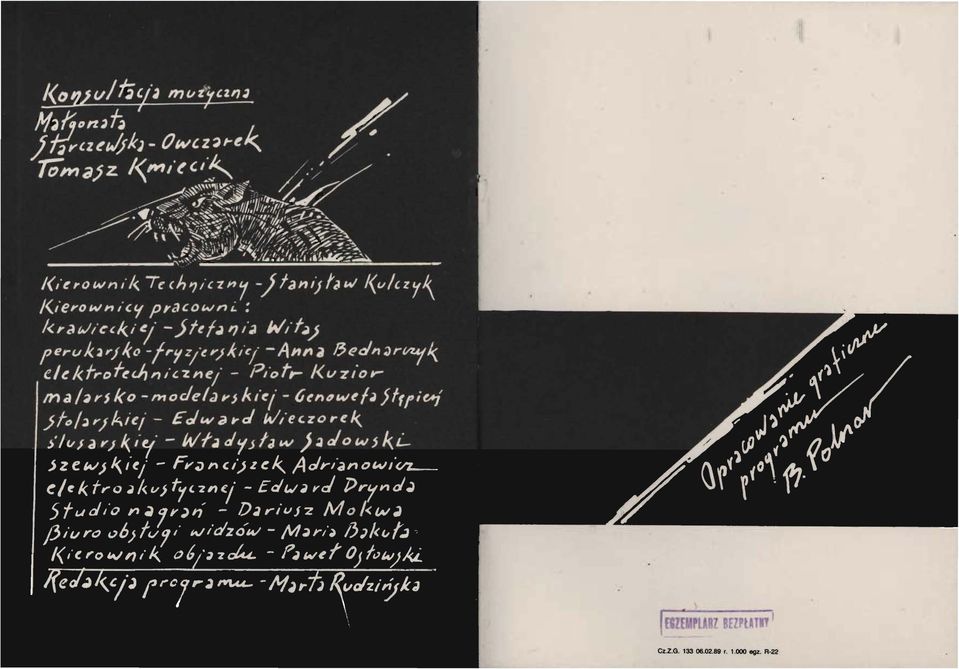 Konsultacja muzyczna
Małgorzata
Starczewska-Owczarek
Tomasz Kmiecik
Kierownik Techniczny - Stanisław Kulczyk
Kierownicy pracowni:
krawieckiej - Stefania Witas
perukarsko-fryzjerskiej - Anna Bednarczyk
elektrotechnicznej - Piotr Kuzior
malarsko-modelarskiej - Genowefa Stępień
stolarskiej - Edward Wieczorek
ślusarskiej - Władysław Sadowski
szewskiej - Franciszek Adrianowicz
elektroakustycznej - Edward Drynda
Studio nagrań - Dariusz Mokwa
Biuro obsługi widzów - Maria Bakuła
Kierownik objazdu - Paweł Osłowski
Redakcja programu - Marta Rudzińska
Opracowanie graficzne
programu
B. Polnar
EGZEMPLARZ BEZPŁATNY
Cz.Z.G. 133 06.02.89 r. 1.000 egz. R-22